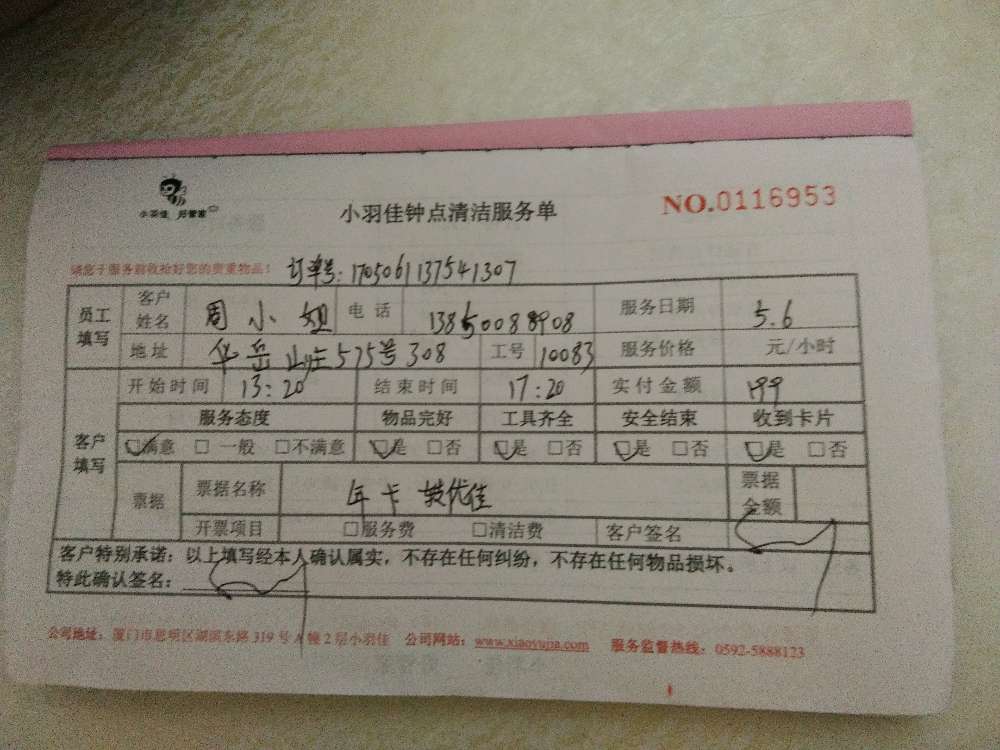 小羽佳 好管家
小羽佳钟点清洁服务单
NO.0116953
请您于服务前收拾好您的贵重物品!
订单号:1705061137541307
员工填写 客户姓名 周小姐 电话 服务日期 5.6
地址 华岳山庄575号308 工号 10083 服务价格 元/小时
客户填写 开始时间 13:20 结束时间 17:20 实付金额 199
服务态度 物品完好 工具齐全 安全结束 收到卡片
☑满意 □一般 □不满意 ☑是 □否 ☑是 □否 ☑是 □否 ☑是 □否
票据 票据名称 年卡 票据金额
开票项目 □服务费 □清洁费 客户签名
客户特别承诺:以上填写经本人确认属实,不存在任何纠纷,不存在任何物品损坏。
特此确认签名:
公司地址:厦门市思明区湖滨东路319号A幢2层小羽佳 公司网站:www.xiaoyujia.com 服务监督热线:0592-5888123